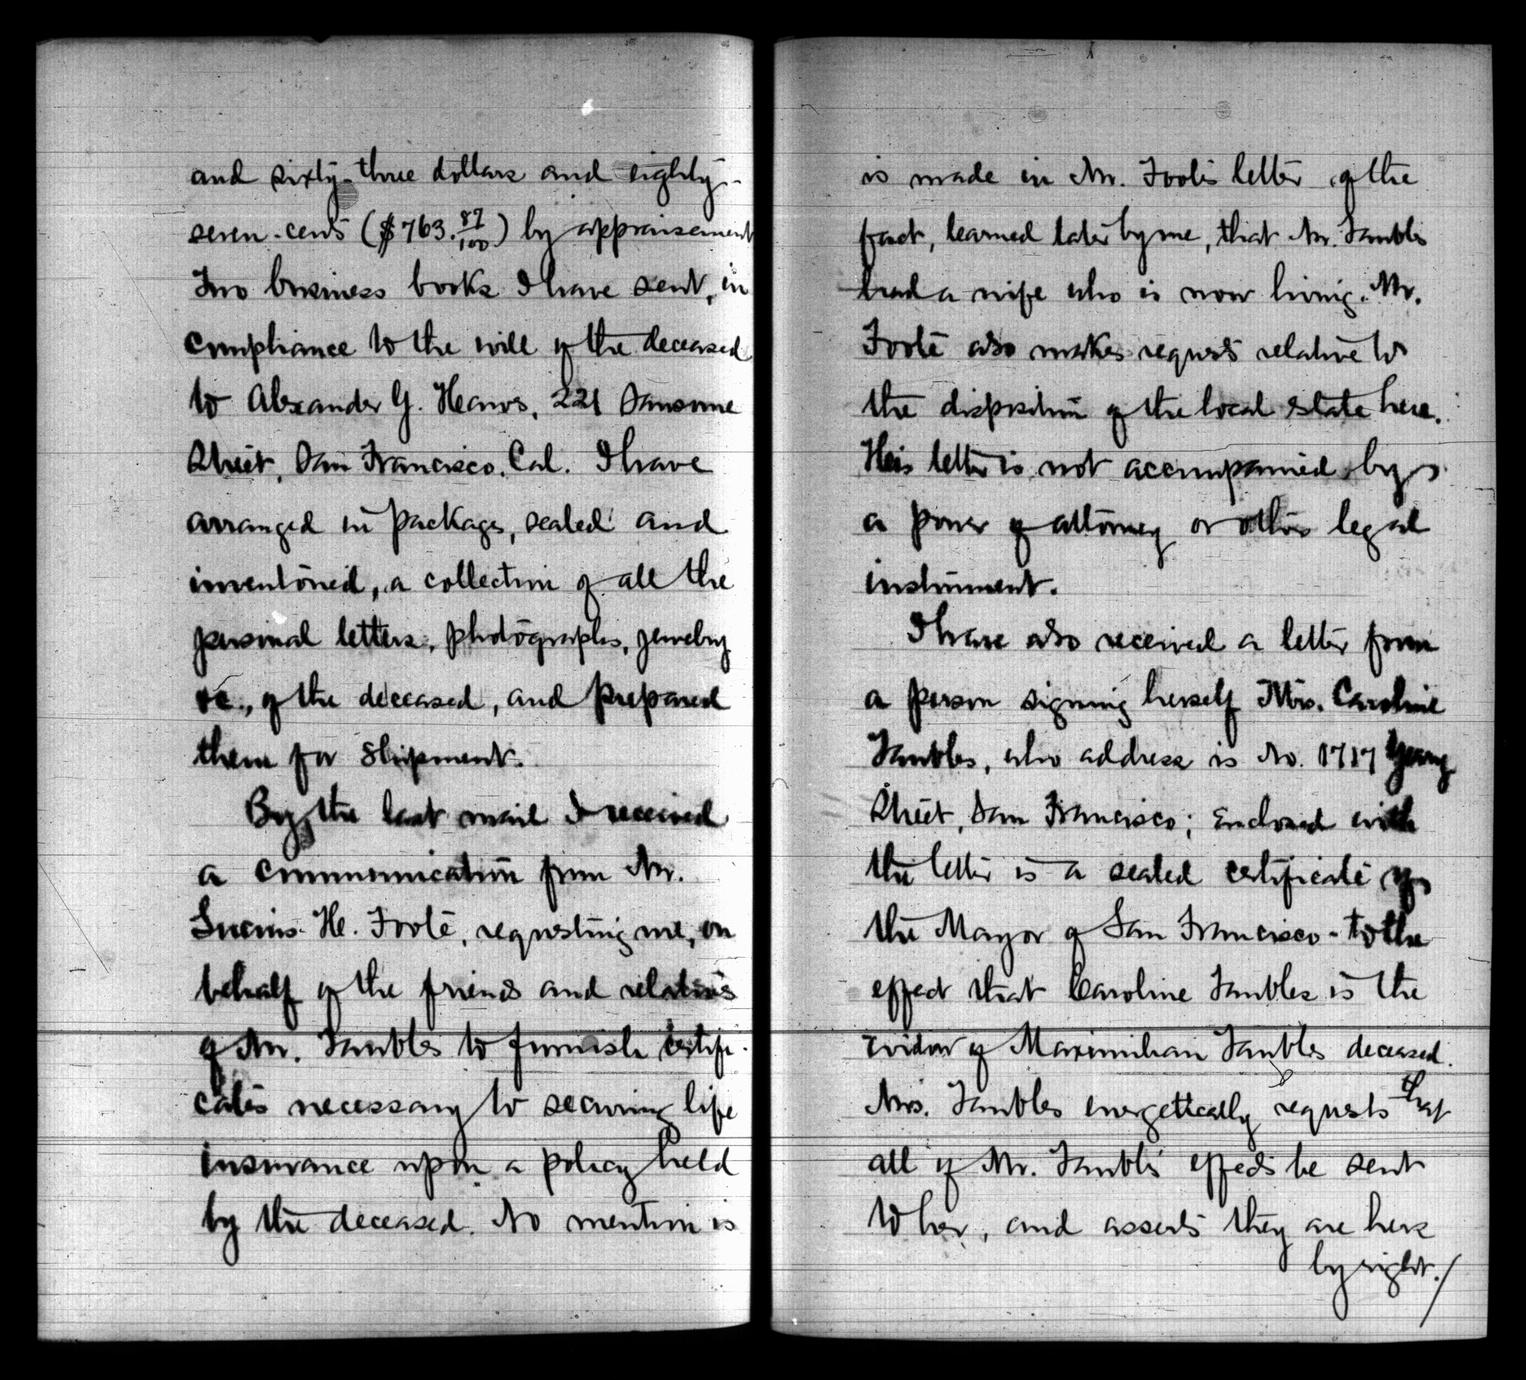 and sixty-three dollars and eighty-
seven-cents ($763.87/100) by appraisement
Two business books I have sent, in
compliance to the will of the deceased
to Alexander G. Hearvs, 221 Sansome
Street, San Francisco, Cal. I have
arranged in packages, sealed and
inventoried, a collection of all the
personal letters, photographs, jewelry
&c., of the deceased, and prepared
them for shipment.
By the last mail I received
a communication from Mr.
Lucius H. Foote, requesting me, on
behalf of the friends and relatives
of Mr. Taubles to furnish certifi-
cates necessary to securing life
insurance upon a policy held
by the deceased. No mention is
is made in Mr. Foote's letter of the
fact, learned later by me, that Mr. Taubles
had a wife who is now living. Mr.
Foote also makes requests relative to
the disposition of the local estate here.
His letter is not accompanied by
a power of attorney or other legal
instrument.
I have also received a letter from
a person signing herself Mrs. Caroline
Taubles, who address is No. 1717 Geary
Street, San Francisco; enclosed with
the letter is a sealed certificate of
the Mayor of San Francisco - to the
effect that Caroline Taubles is the
widow of Maximilian Taubles deceased.
Mrs. Taubles energetically requests that
all of Mr. Taubles' effects be sent
to her, and asserts they are hers
by right./